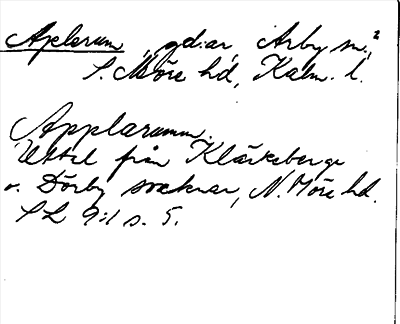 Aplerum, gd:ar, Arby sn,²
S. Möre hd, Kalm. l.
Applarumm.
Uttal från Kläckeberga
o. Dörby socknar, N. Möre hd.
SL 9:1 s. 5.